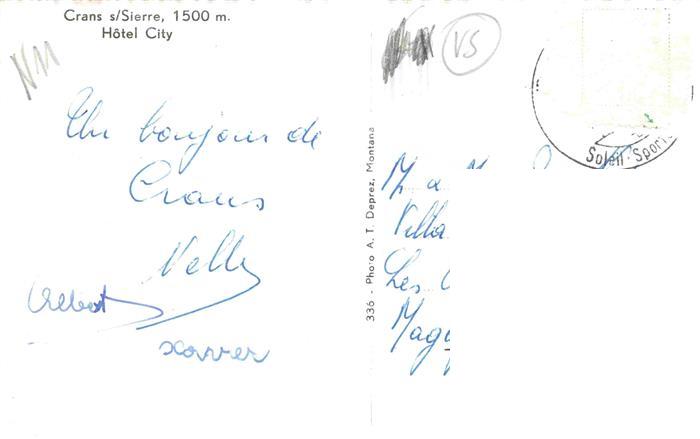 Crans s/Sierre, 1500 m.
Hôtel City
NM
VS
Soleil - Sport
Un bonjour de
Crans
Nelly
Albert
Xavier
336 - Photo A. T. Deprez, Montana
Villa
Les